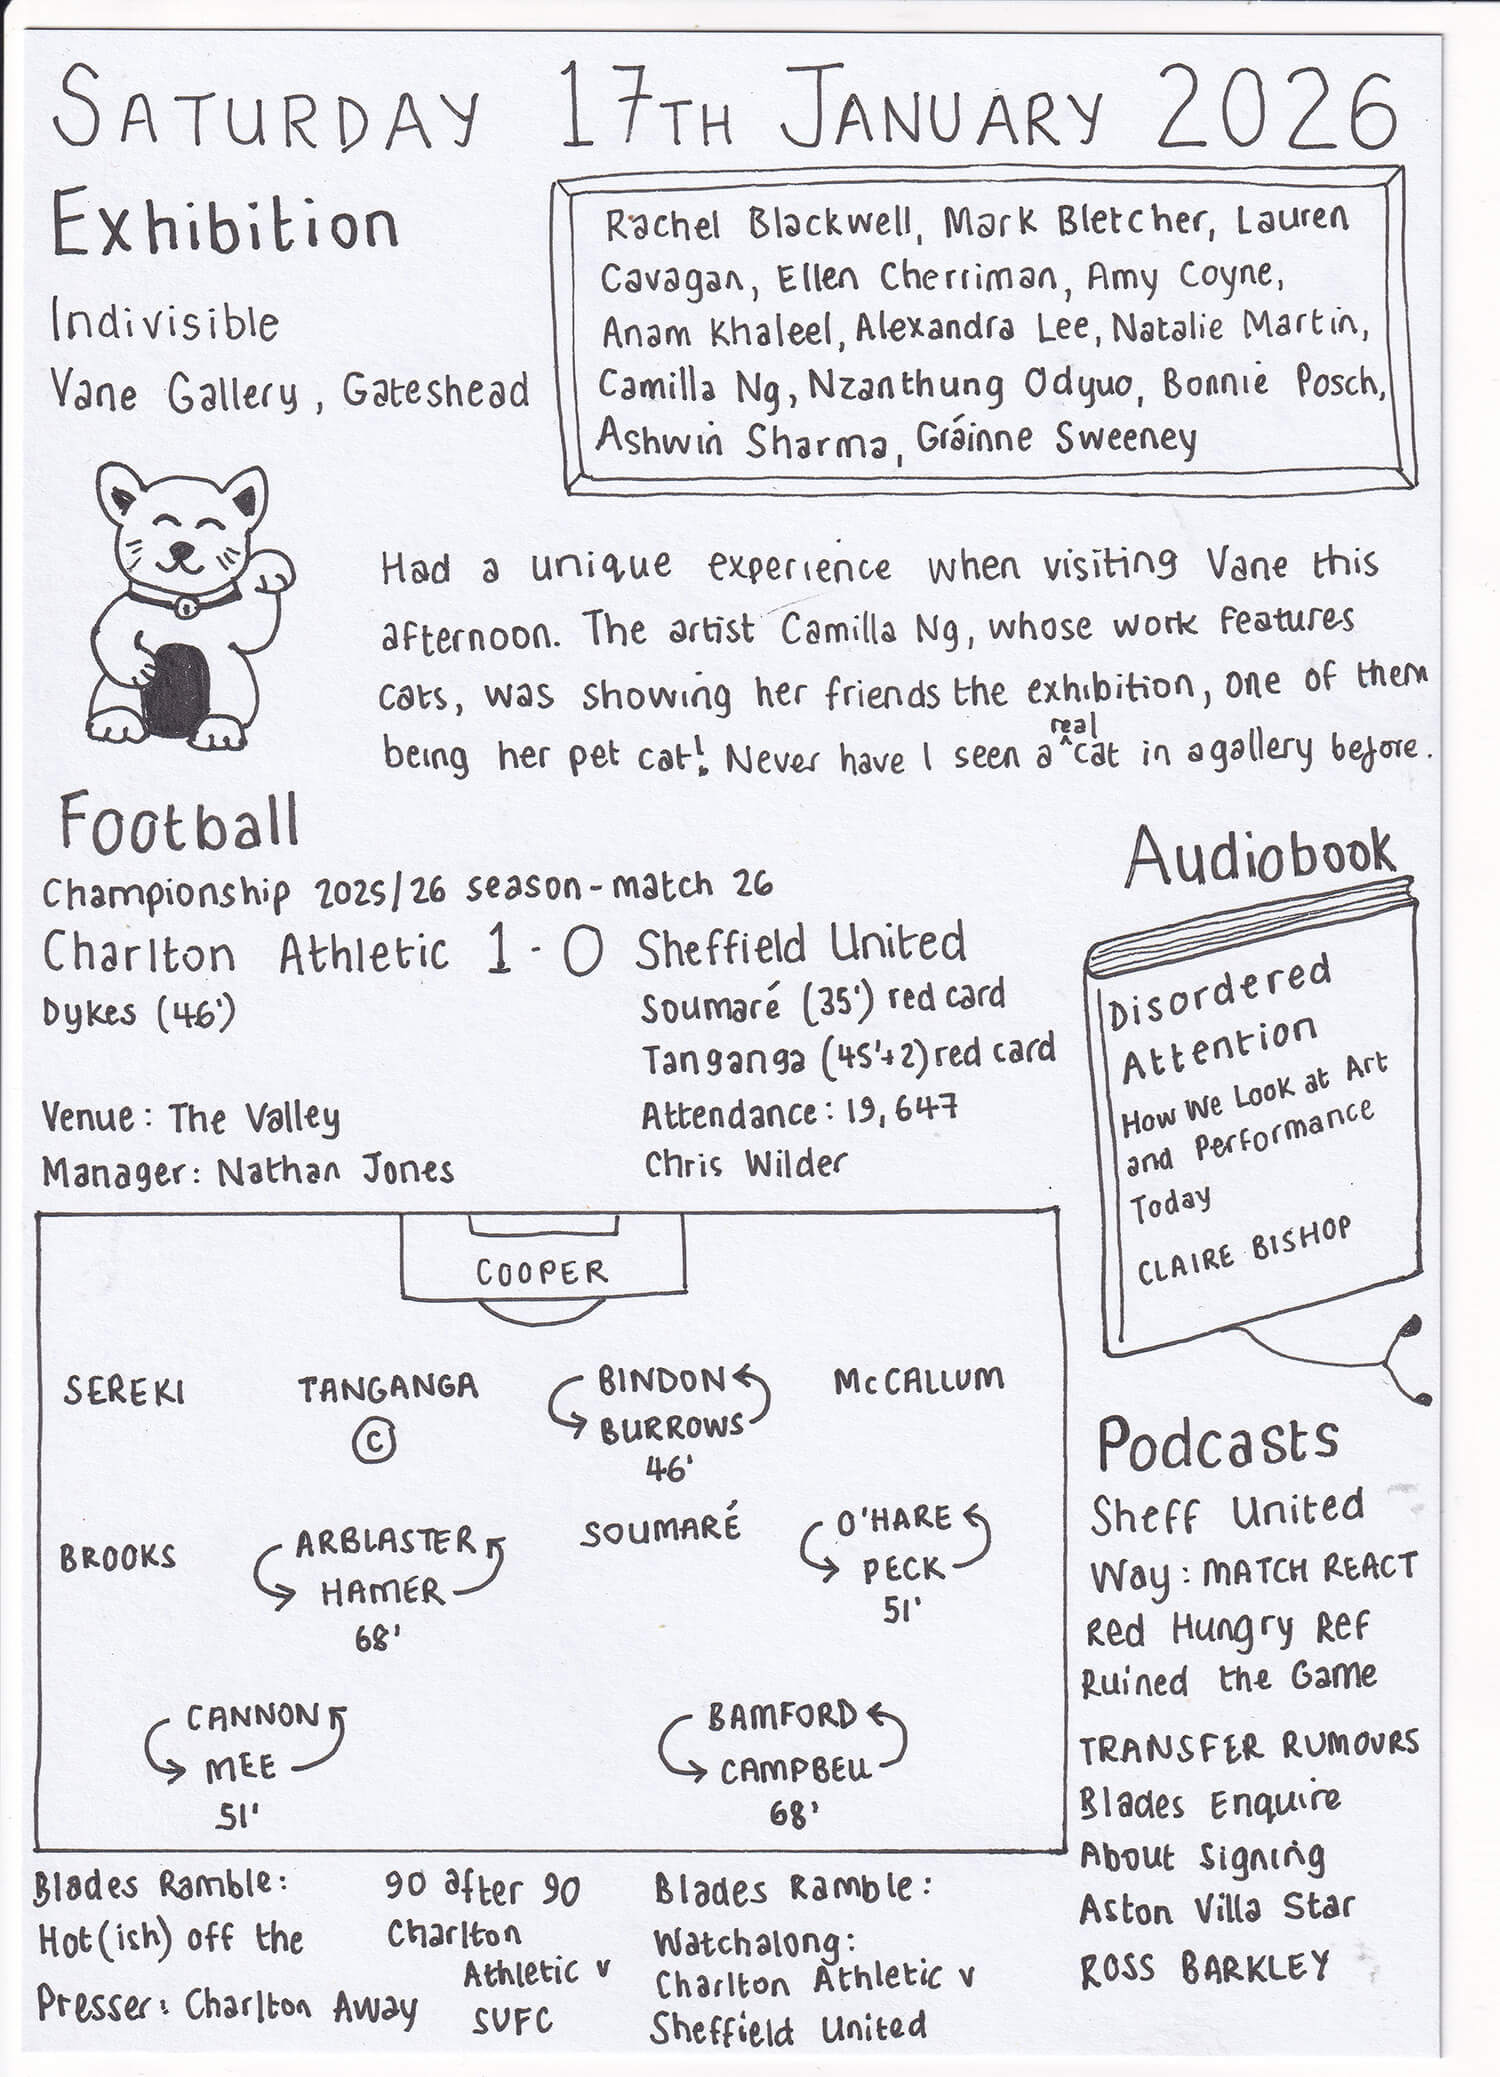 SATURDAY 17TH JANUARY 2026
Exhibition
Indivisible
Vane Gallery, Gateshead
Rachel Blackwell, Mark Bletcher, Lauren
Cavagan, Ellen Cherriman, Amy Coyne,
Anam Khaleel, Alexandra Lee, Natalie Martin,
Camilla Ng, Nzanthung Odyuo, Bonnie Posch,
Ashwin Sharma, Gráinne Sweeney
Had a unique experience when visiting Vane this
afternoon. The artist Camilla Ng, whose work features
cats, was showing her friends the exhibition, one of them
being her pet cat! Never have I seen a ^real cat in a gallery before.
Football
Championship 2025/26 season - match 26
Charlton Athletic 1 - 0 Sheffield United
Dykes (46')
Soumaré (35') red card
Tanganga (45'+2) red card
Venue: The Valley
Attendance: 19,647
Manager: Nathan Jones
Chris Wilder
COOPER
SEREKI TANGANGA BINDON McCALLUM
© BURROWS
46'
BROOKS ARBLASTER SOUMARÉ O'HARE
HAMER PECK
68' 51'
CANNON BAMFORD
MEE CAMPBELL
51' 68'
Audiobook
Disordered
Attention
How We Look at Art
and Performance
Today
CLAIRE BISHOP
Podcasts
Sheff United
Way: MATCH REACT
Red Hungry Ref
Ruined the Game
TRANSFER RUMOURS
Blades Enquire
About Signing
Aston Villa Star
ROSS BARKLEY
Blades Ramble:
Hot(ish) off the
Presser: Charlton Away
90 after 90
Charlton
Athletic v
SUFC
Blades Ramble:
Watchalong:
Charlton Athletic v
Sheffield United